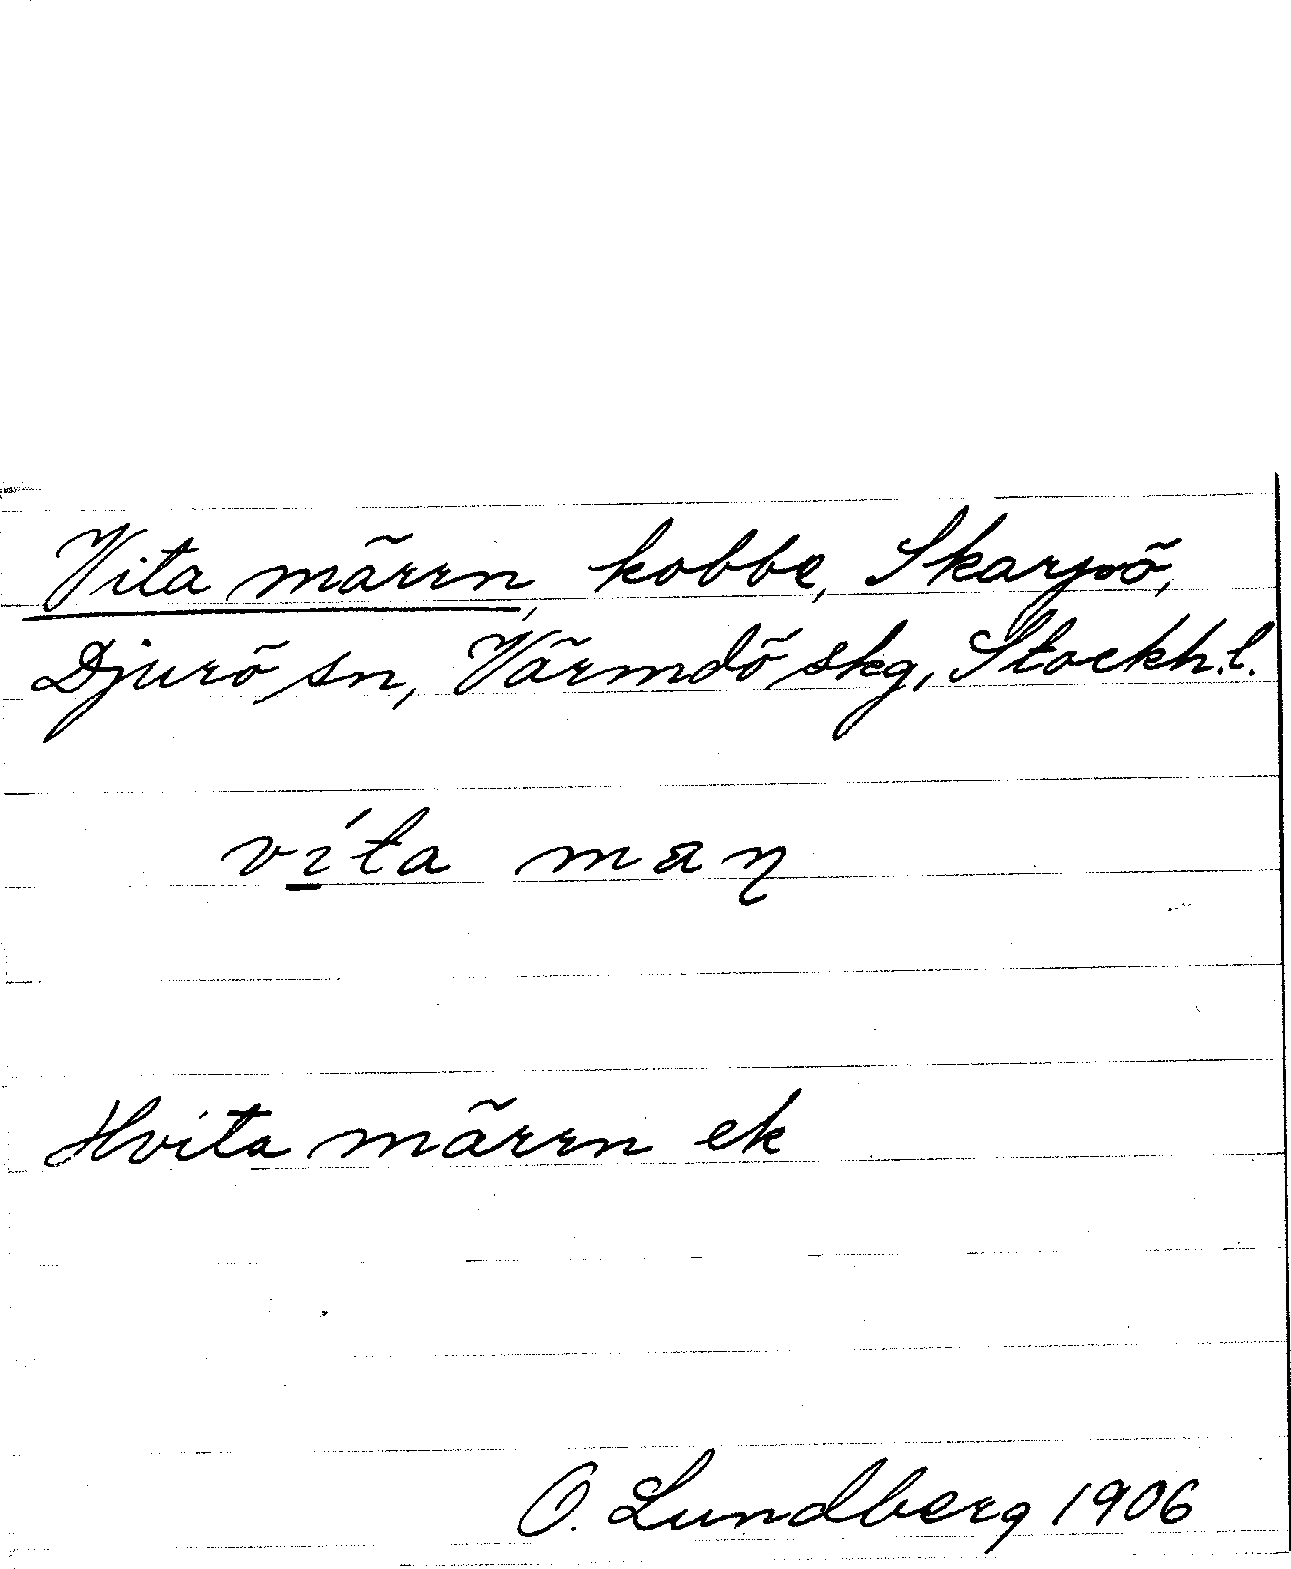 Vita märrn, kobbe, Skarpö,
Djurö sn, Värmdö skg, Stockh.l.
ví̲ta maɳ
Hvita märrn ek
O. Lundberg 1906